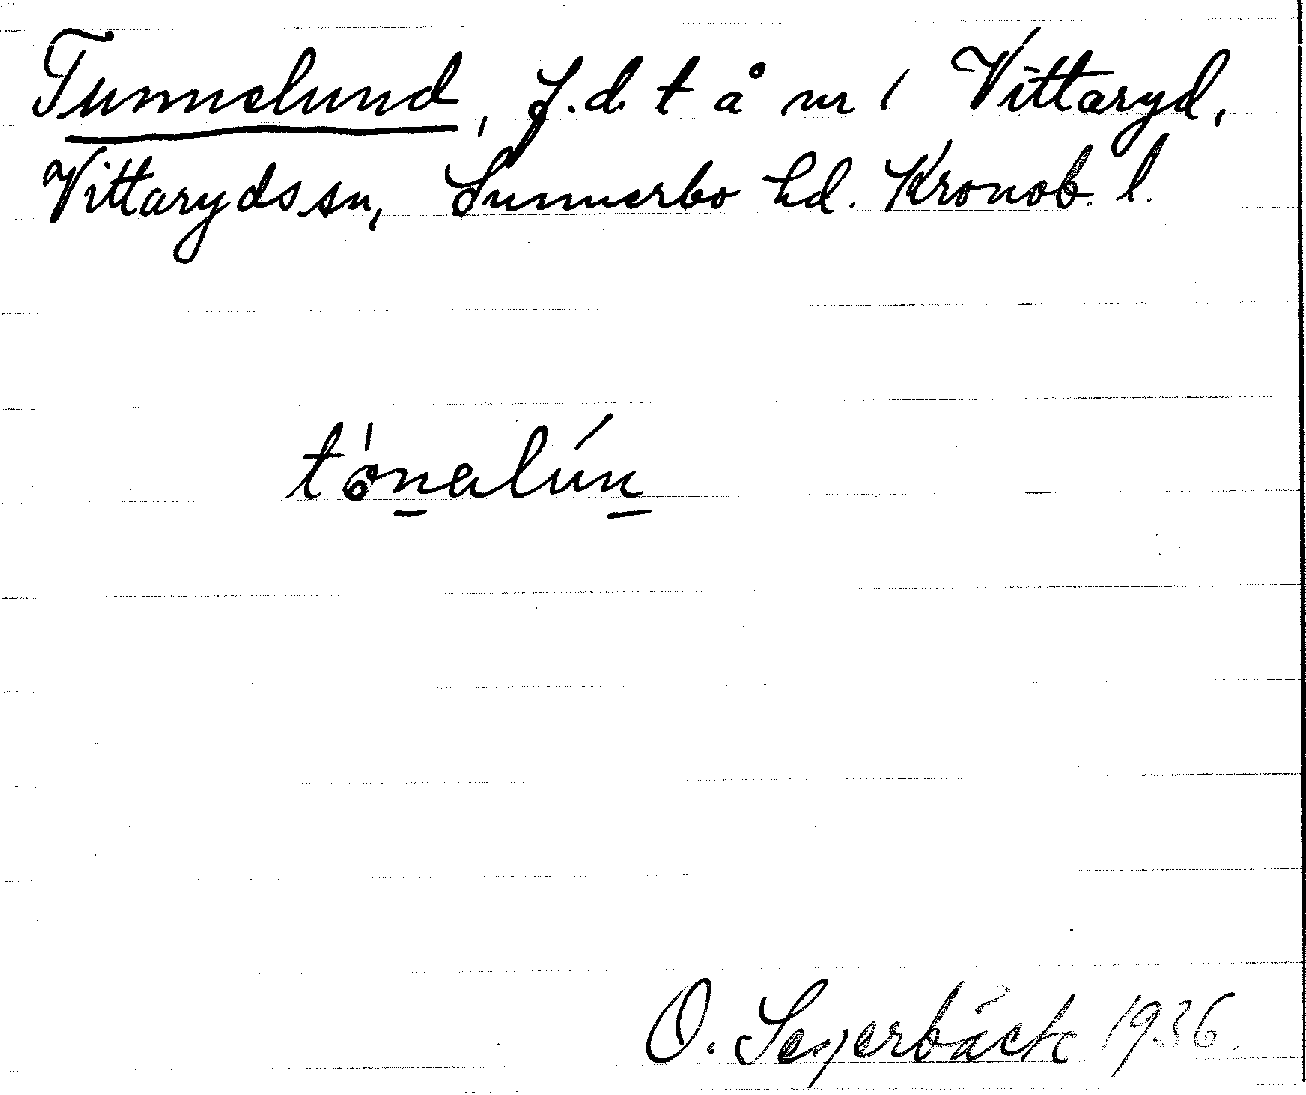 Tunnelund, f.d. t å nr 1 Vittaryd,
Vittaryds sn, Sunnerbo hd. Kronob. l.
tónalún
O. Segerbäck 1936.